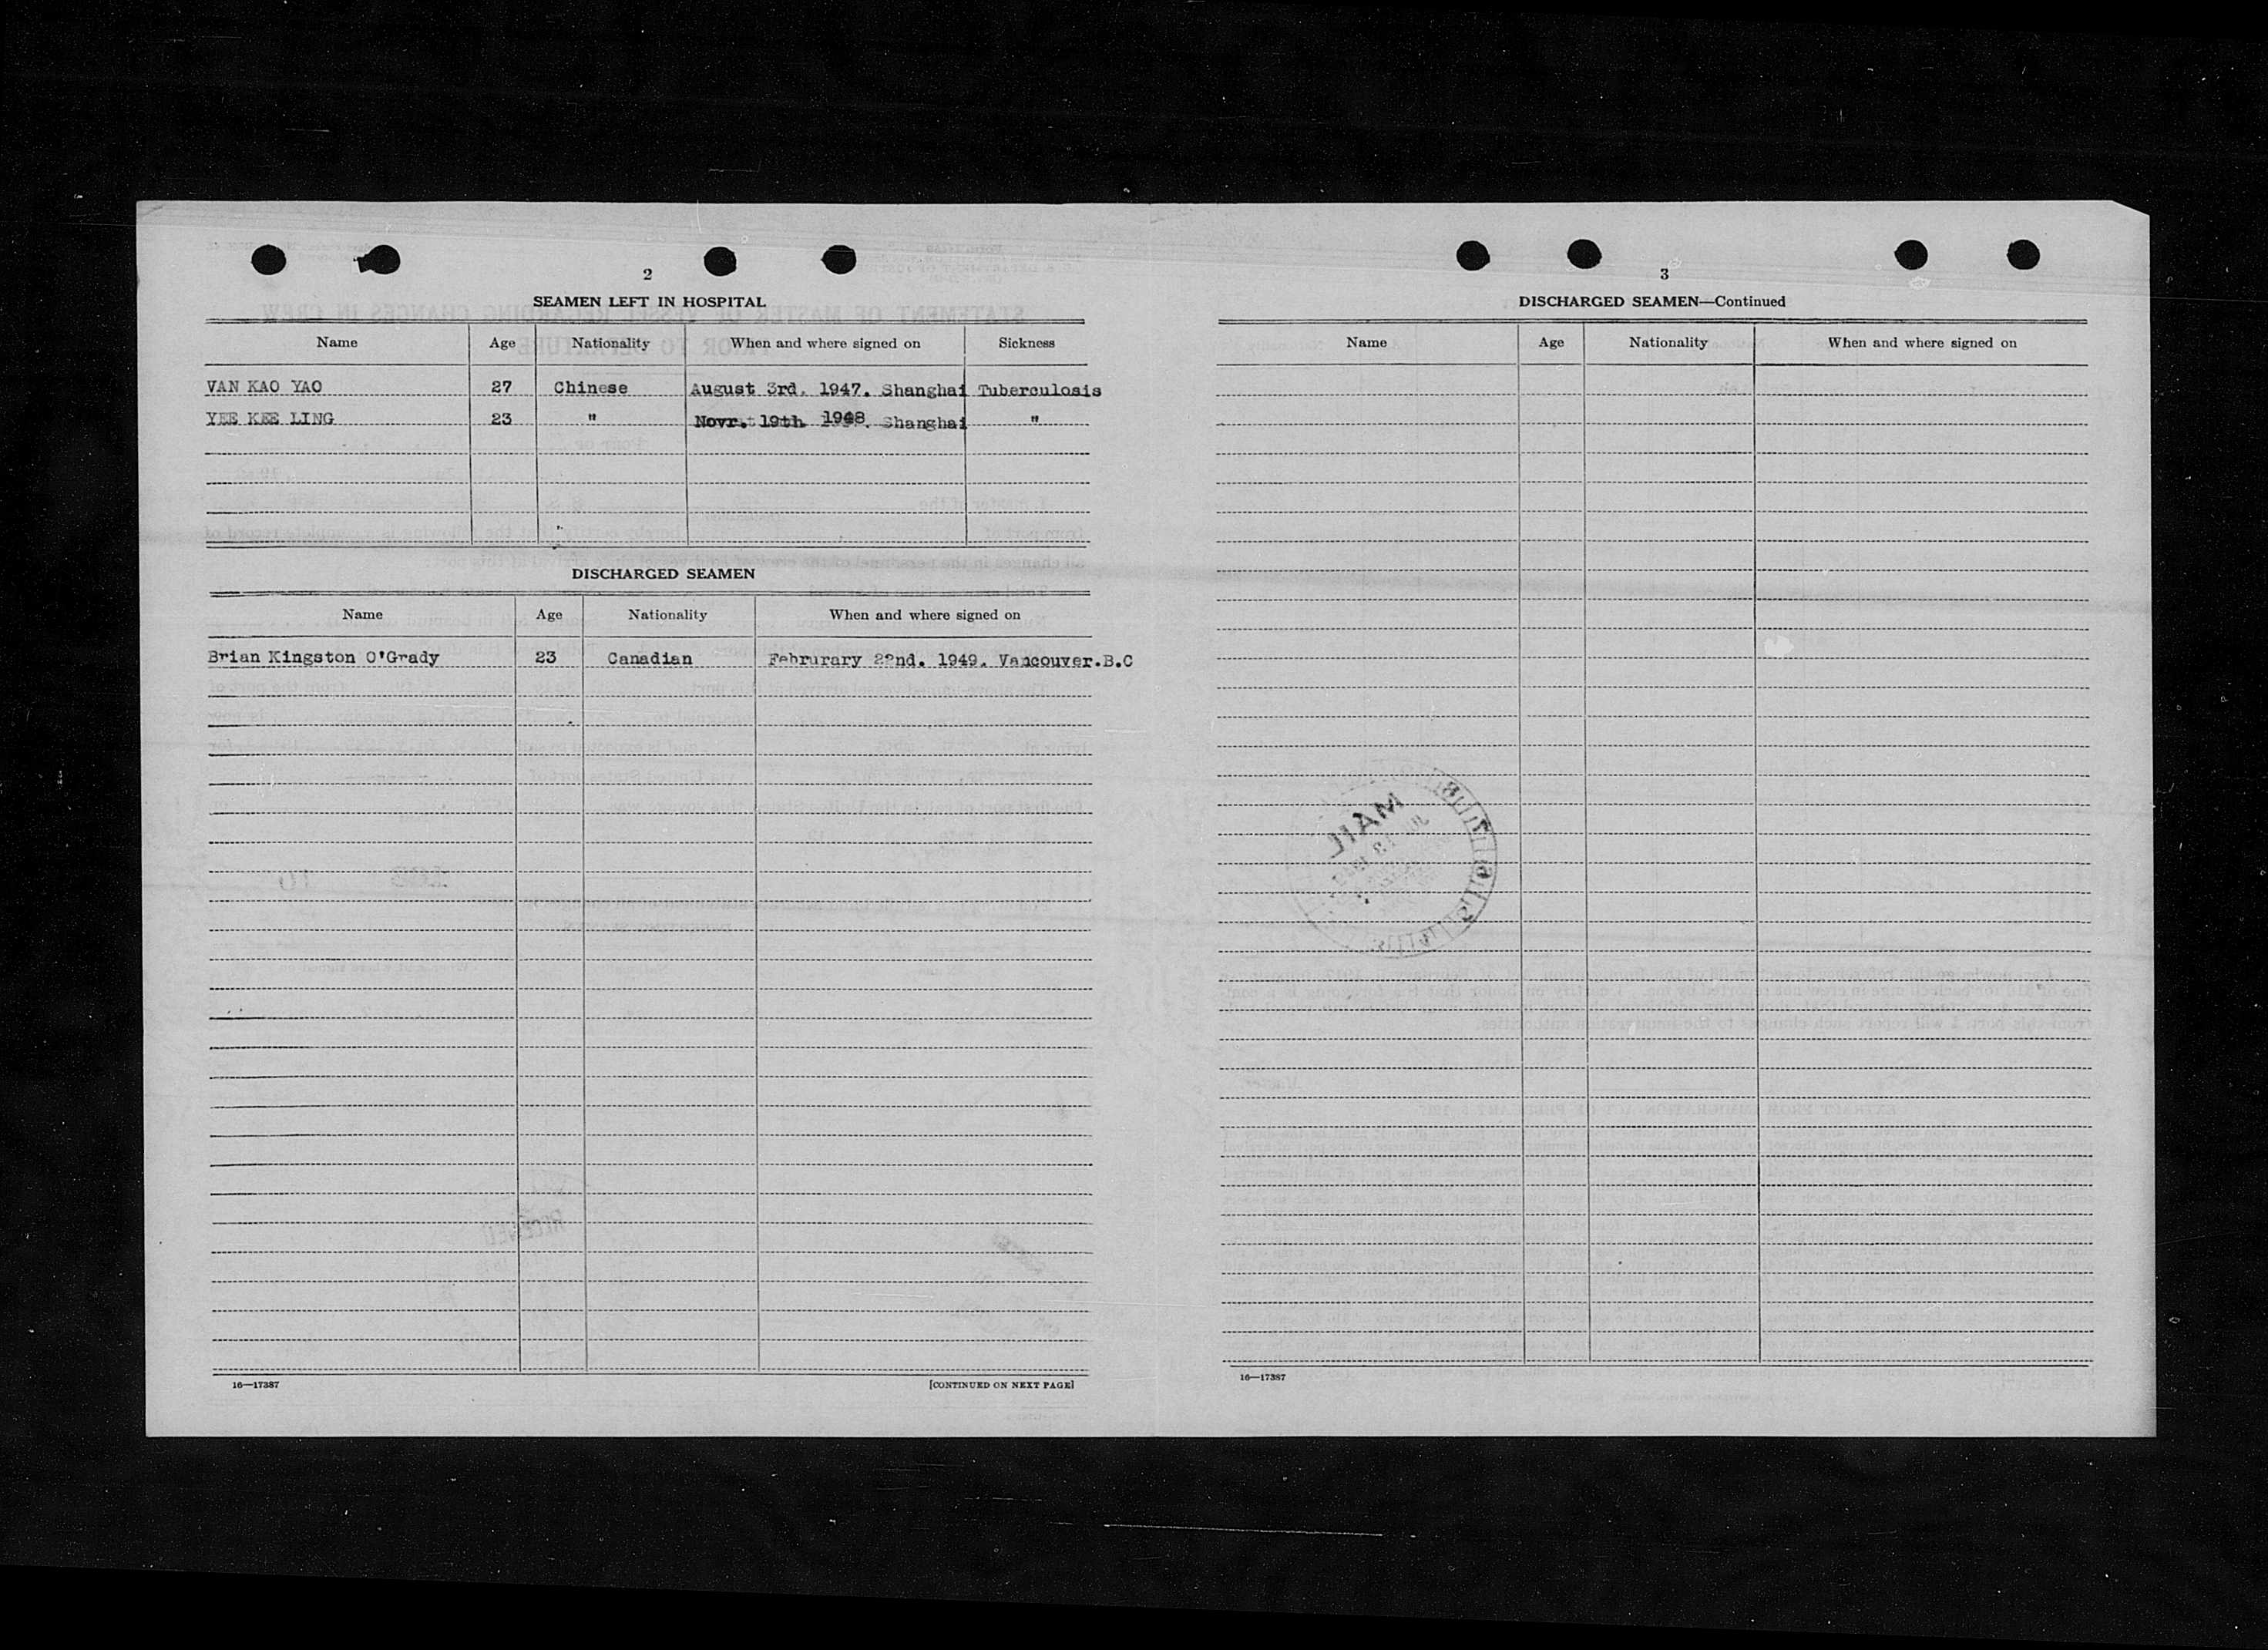 2
SEAMEN LEFT IN HOSPITAL
Name Age Nationality When and where signed on Sickness
VAN KAO YAO 27 Chinese August 3rd. 1947. Shanghai Tuberculosis
YEE KEE LING 23 " Novr. 19th 1948. Shanghai "
DISCHARGED SEAMEN
Name Age Nationality When and where signed on
Brian Kingston O'Grady 23 Canadian Februrary 22nd. 1949. Vancouver.B.C
16—17387 [CONTINUED ON NEXT PAGE]
3
DISCHARGED SEAMEN—Continued
Name Age Nationality When and where signed on
MAIL
16—17387